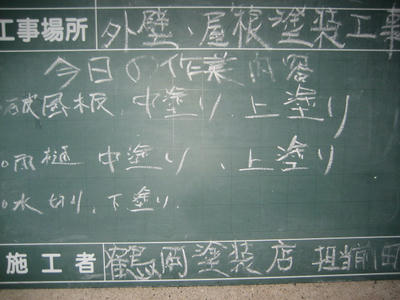 工事場所 外壁、屋根塗装工事
今日の作業内容
○破風板 中塗り、上塗り
○雨樋 中塗り、上塗り
○水切り、下塗り.
施工者 鶴岡塗装店 担当前田